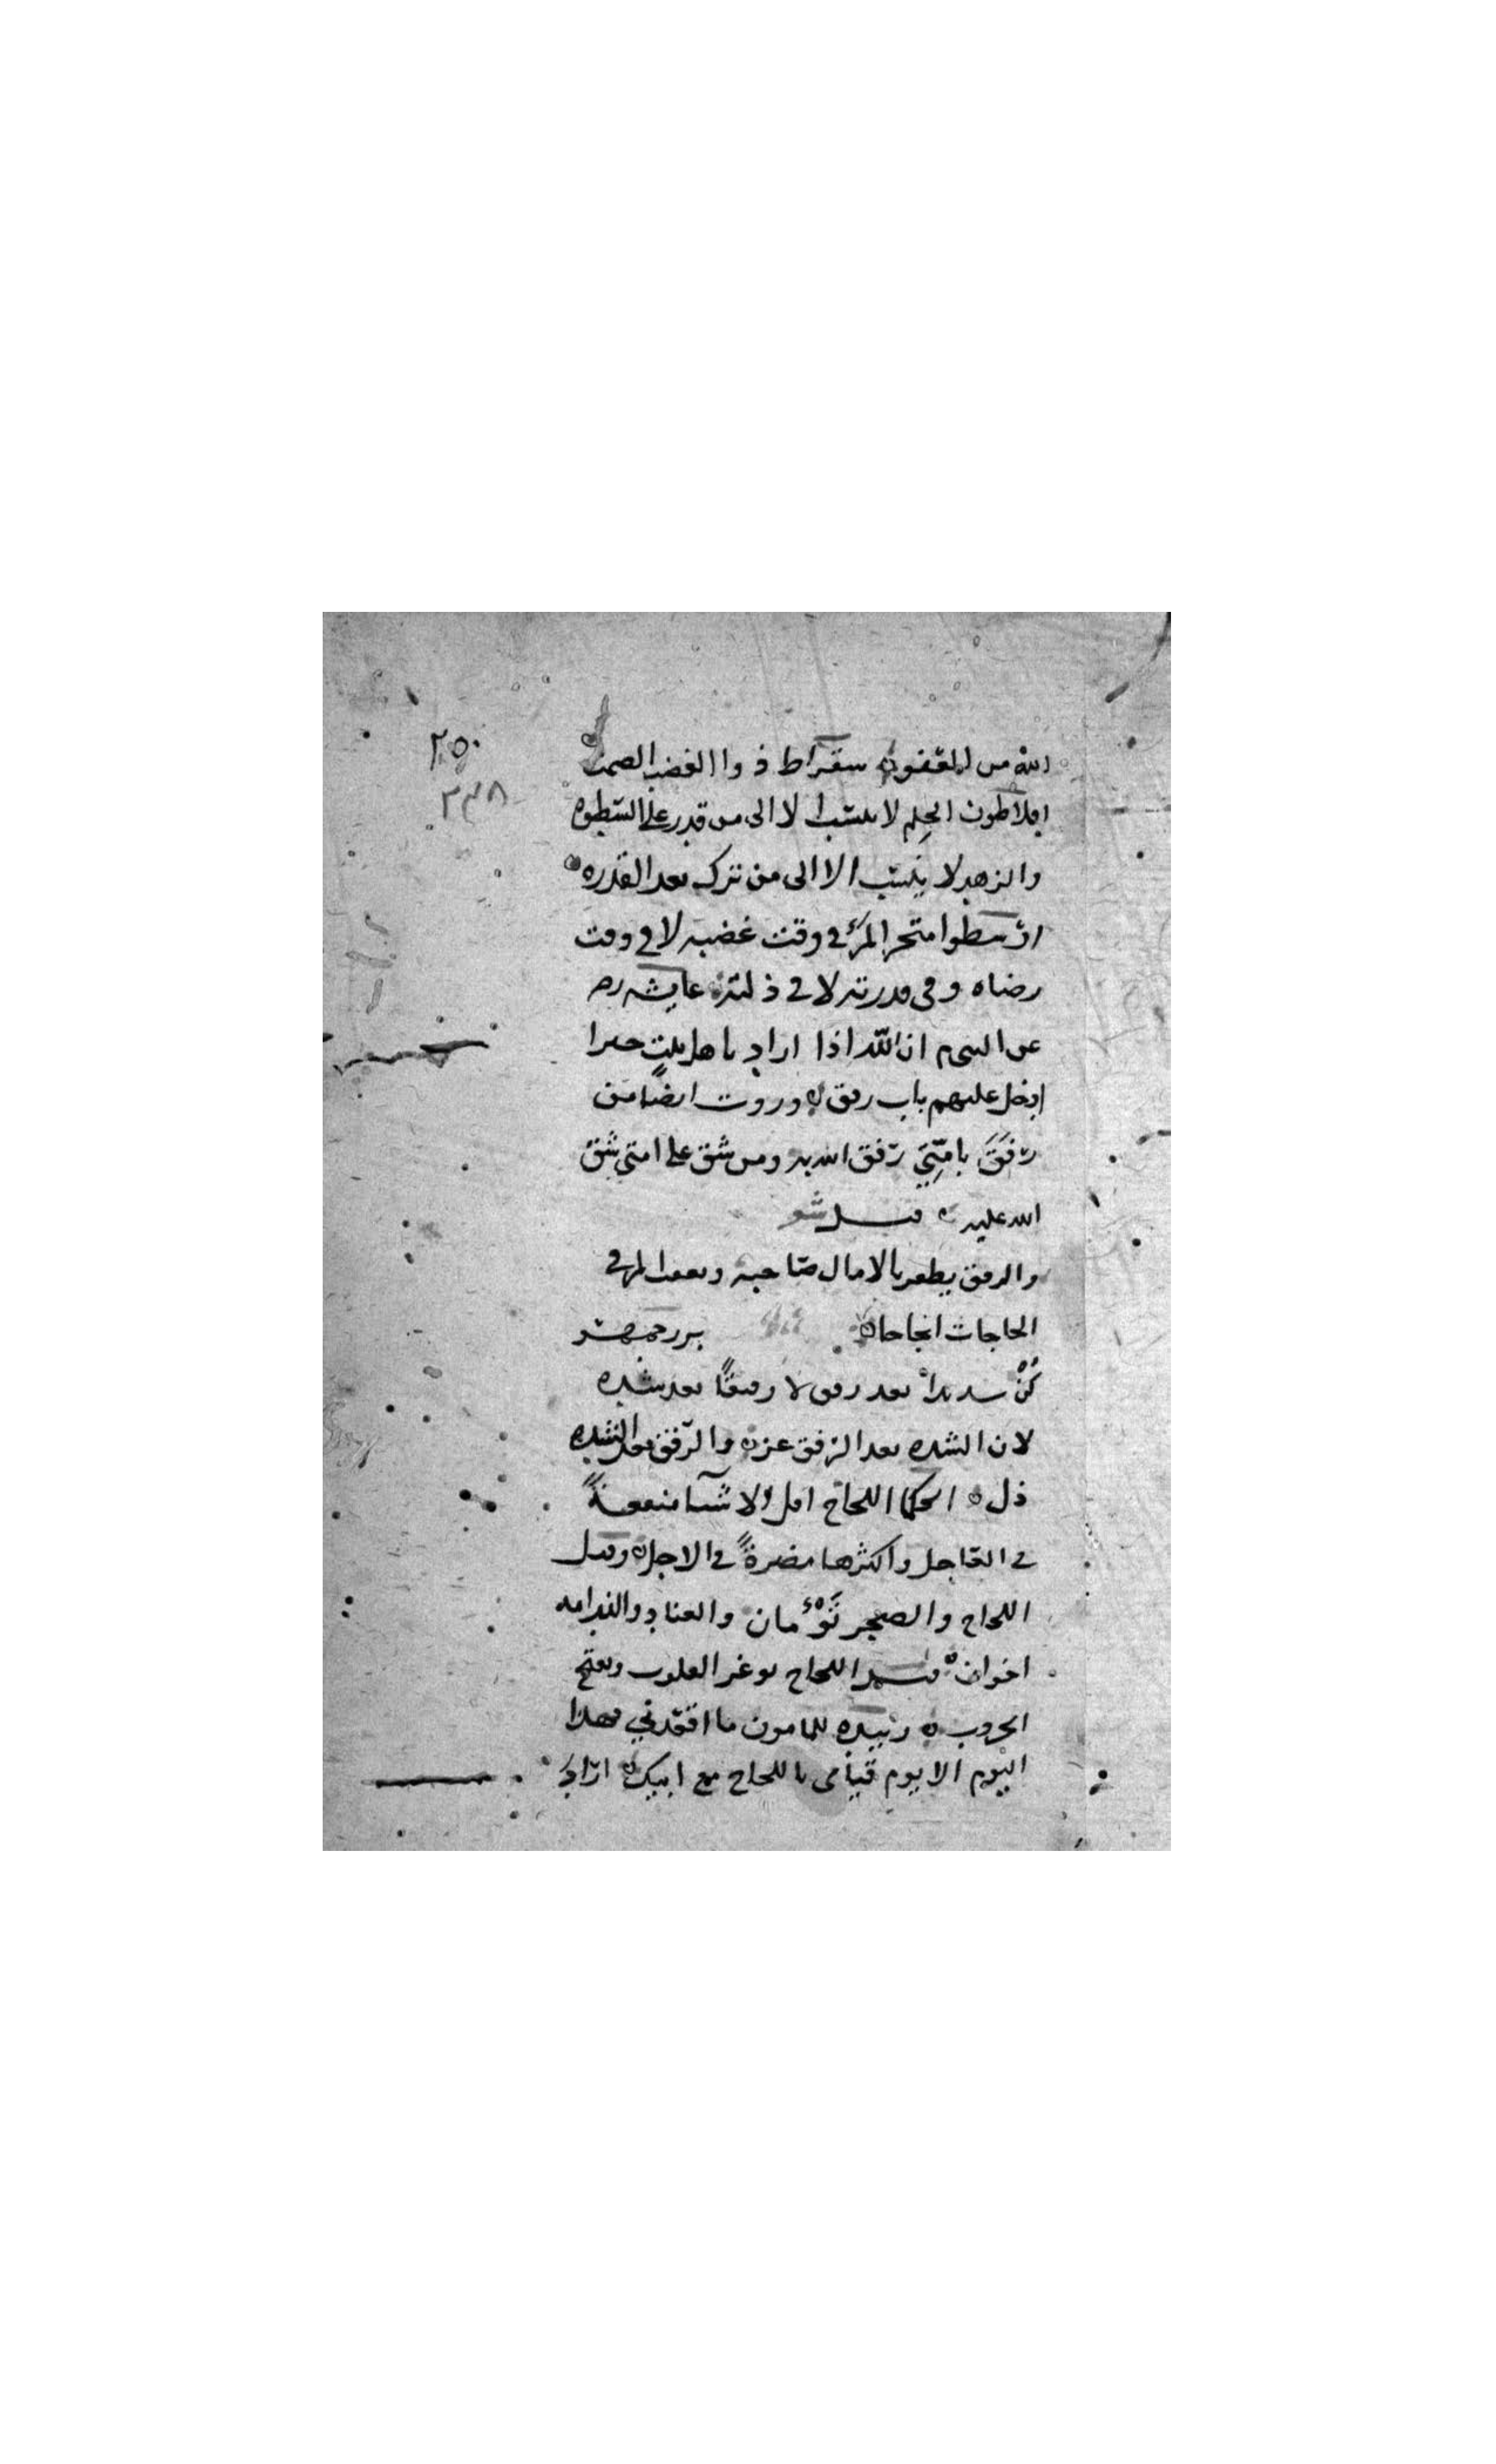 ٢٥٠
٢٣٨
الله من المقفون سقراط دواا الغضب الصمت
افلاطون الحلم لا ينسب الا الى من قدر على السطوه
والزهد لا ينسب الا الى من ترك بعد القدره
ارسطوا متحن المرء في وقت غضبه لا في وقت
رضاه وفي قدرته لا في ذلته عايشه رضه
عن النبي م ان الله اذا اراد باهل بيتٍ خيرا
ادخل عليهم باب رفق وروت ايضا من
رَفَقَ بامّتِي رَفق الله به ومن شق على امتي شَق
الله عليه قيل شعر
والرفق يظفر بالامال صاحبه ويعقب المرء في
الحاجات انجاحا بزرجمهر
كُنْ شديداً بعد رفق لا رفيقًا بعد شده
لان الشده بعد الرفق عز والرّفق بعد الشده
ذل الحكما اللجاج اقل الاشيآ منفعةً
في العاجل واكثرها مضرةً في الاجل وقيل
اللجاج والضجر تَوْءمان والعناد والندامه
اخوان قيل اللجاج يوغر القلوب وينتج
الحروب زبيده للمامون ما افقدني فهذا
اليوم الا يوم قيامى باللجاج مع ابيك اراد